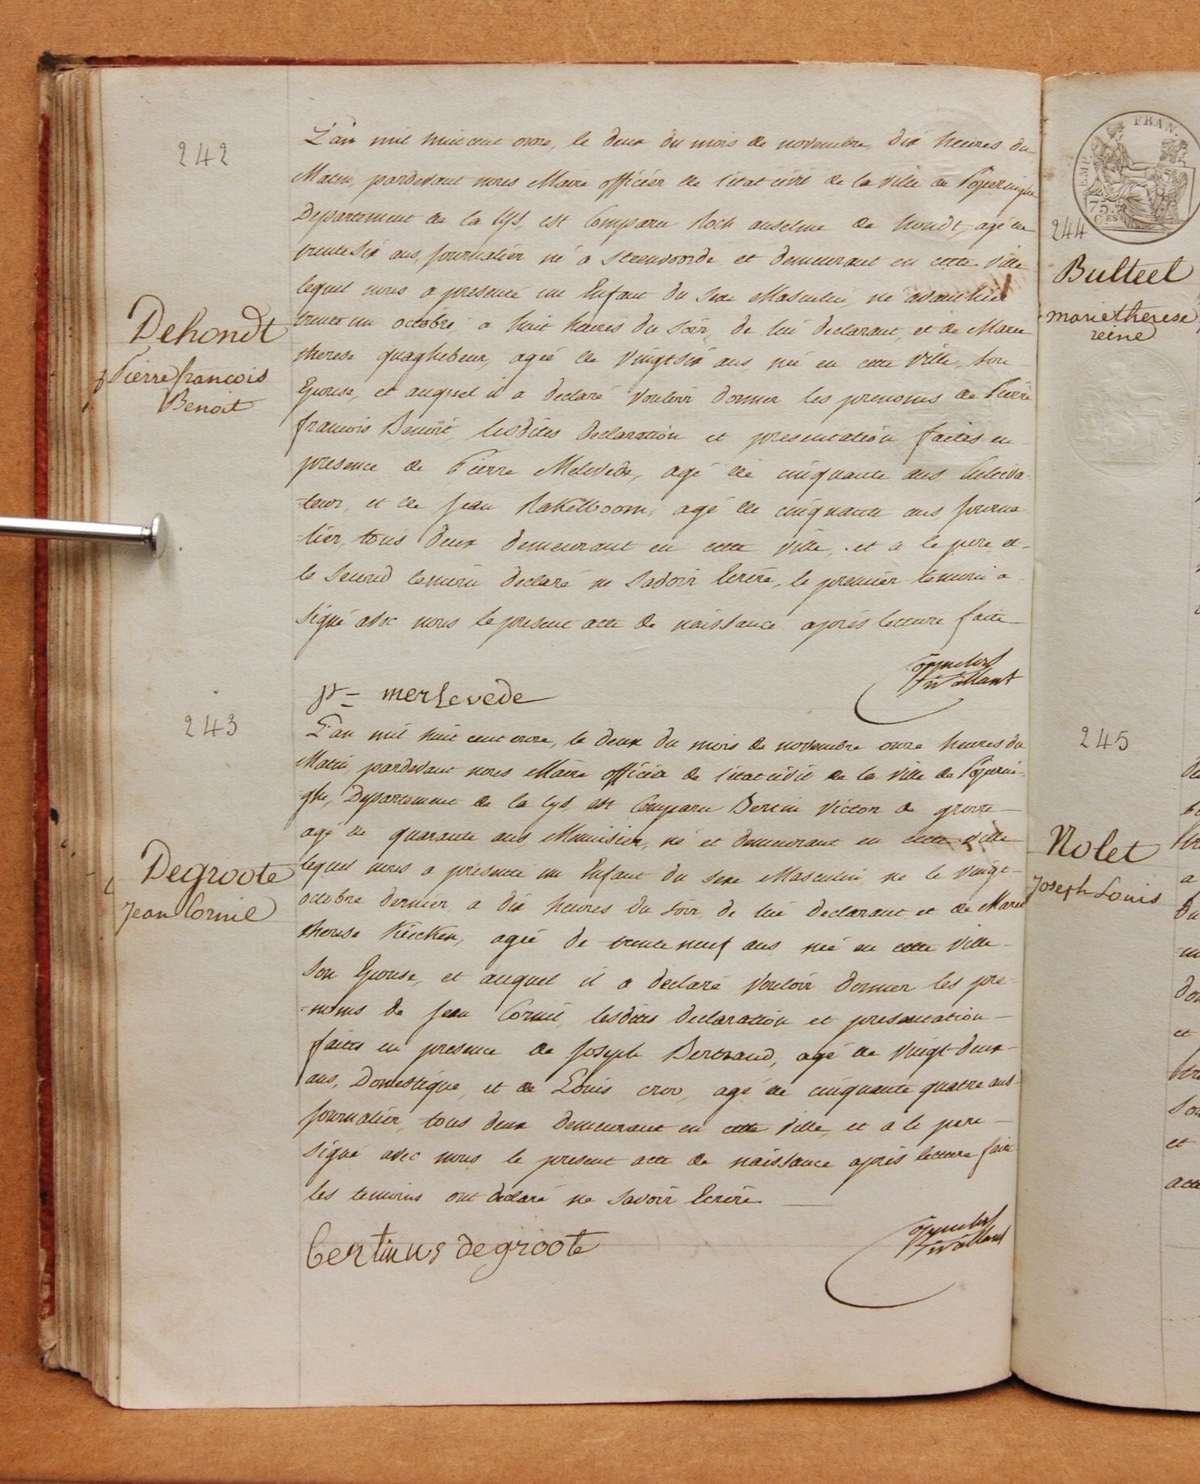 242
L'an mil huit cent onze, le deux du mois de novembre dix heures du
Matin, pardevant nous Maire officier de l'état civil de la ville de Poperinghe
Departement de la Lys, est Comparu Roch anselme de hondt, agé de
trente six ans, journalier né à Steenvoorde et demeurant en cette ville
lequel nous a presenté un Enfant du sexe Masculin né avant hier
trente un octobre à huit heures du soir, de lui declarant, et de Marie
therese quaghebeur, agée de vingt six ans, née en cette ville, son
Epouse, et auquel il a declaré vouloir donner les prenoms de Pierre
francois Benoit, lesdites declaration et presentation faites en
presence de Pierre Merlevede, agé de cinquante ans Cultiva-
teur, et de Jean Rakelboom, agé de cinquante ans journa-
lier, tous deux demeurant en cette ville, et a le pere et
le second temoin declaré ne savoir Ecrire, le premier temoin a
signé avec nous le present acte de naissance après lecture faite
Dehondt
Pierre francois
Benoit
pr = merlevede
243
L'an mil huit cent onze, le deux du mois de novembre onze heures du
Matin pardevant nous Maire officier de l'état civil de la ville de Poperin-
ghe, Departement de la Lys est Comparu Bertin Victor de groote
agé de quarante ans Menuisier, né et demeurant en cette ville
lequel nous a presenté un Enfant du sexe Masculin né le vingt
octobre dernier à dix heures du soir, de lui declarant et de Marie
therese agée de trente neuf ans née en cette ville
son Epouse, et auquel il a declaré vouloir donner les pre-
noms de Jean Cornil, lesdites declaration et presentation
faites en presence de Joseph Bertrand, agé de vingt deux
ans, Domestique, et de Louis agé de cinquante quatre ans
journalier, tous deux demeurant en cette ville, et a le pere
signé avec nous le present acte de naissance après lecture faite
les temoins ont declaré ne savoir Ecrire
Degroote
Jean Cornil
Bertinus degroote
EMP. FRAN.
75
244
Bulteel
marie therese
reine
245
Nolet
Joseph Louis